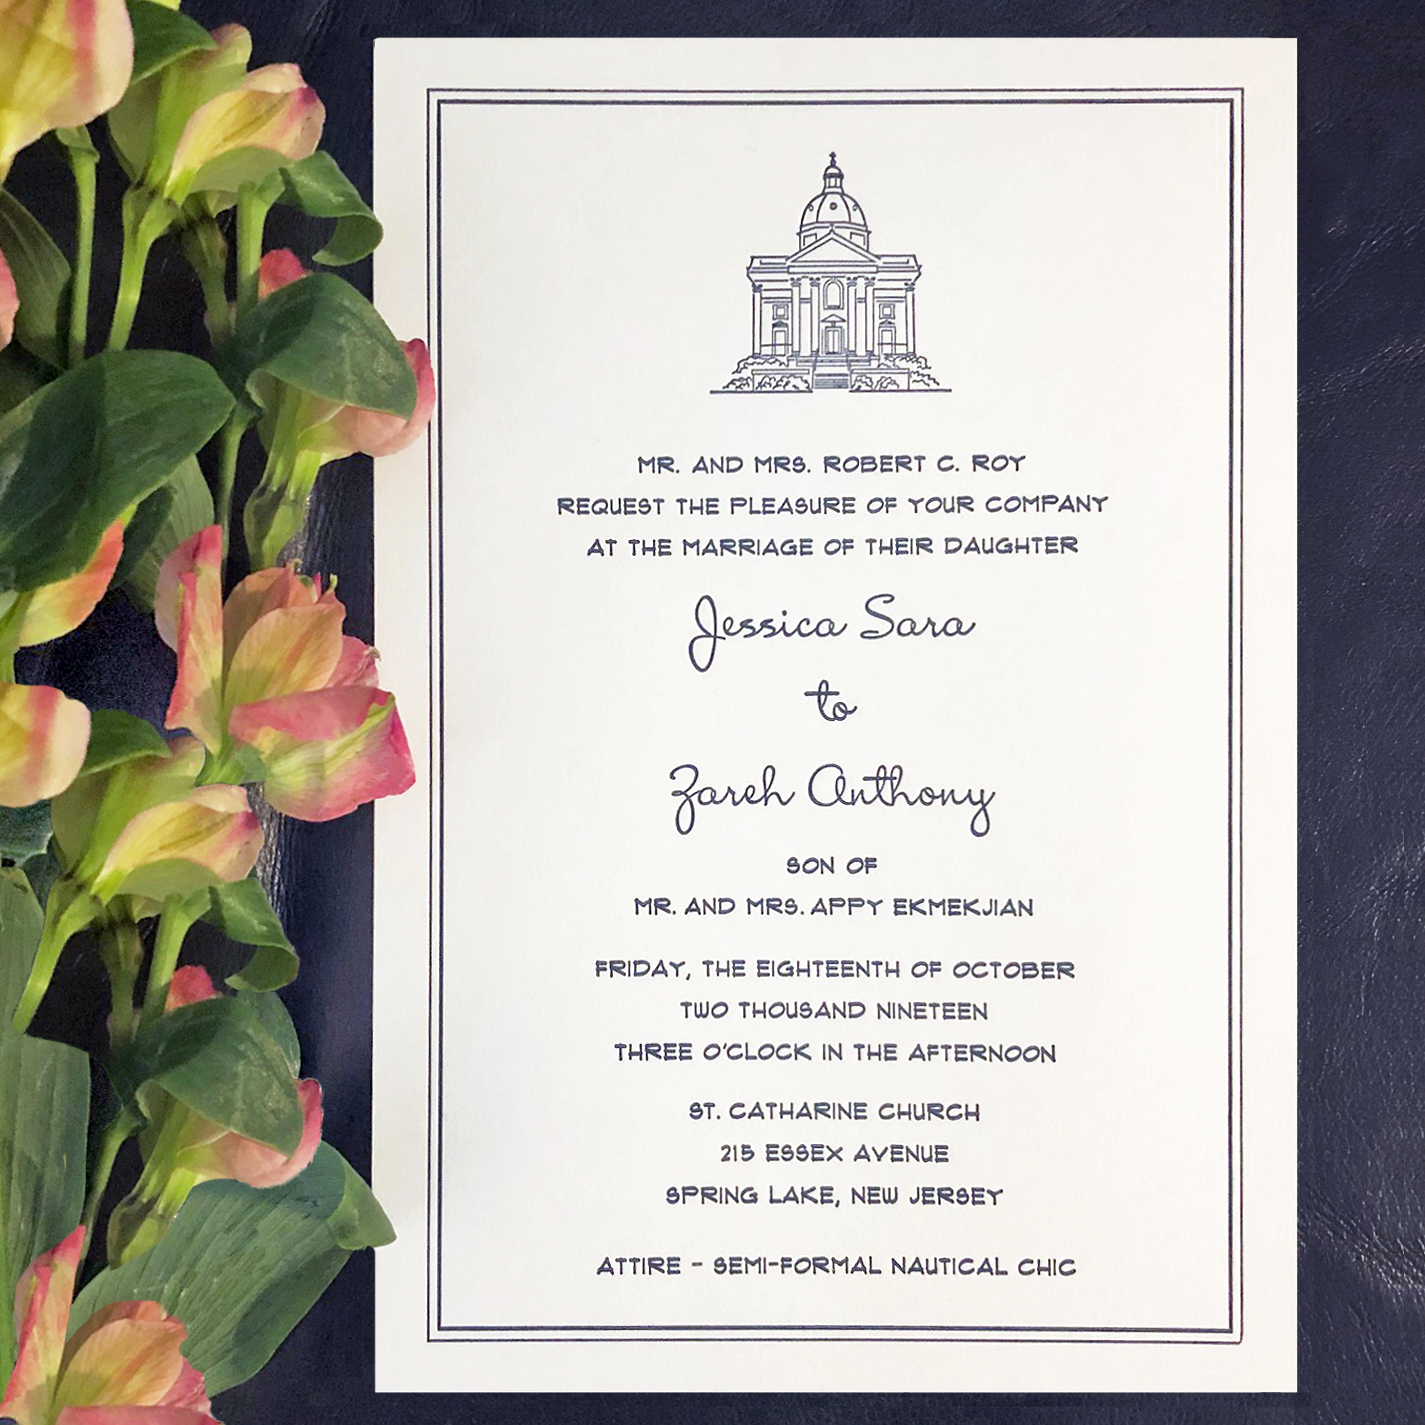 MR. AND MRS. ROBERT C. ROY
REQUEST THE PLEASURE OF YOUR COMPANY
AT THE MARRIAGE OF THEIR DAUGHTER
Jessica Sara
to
Zareh Anthony
SON OF
MR. AND MRS. APPY EKMEKJIAN
FRIDAY, THE EIGHTEENTH OF OCTOBER
TWO THOUSAND NINETEEN
THREE O'CLOCK IN THE AFTERNOON
ST. CATHARINE CHURCH
215 ESSEX AVENUE
SPRING LAKE, NEW JERSEY
ATTIRE - SEMI-FORMAL NAUTICAL CHIC